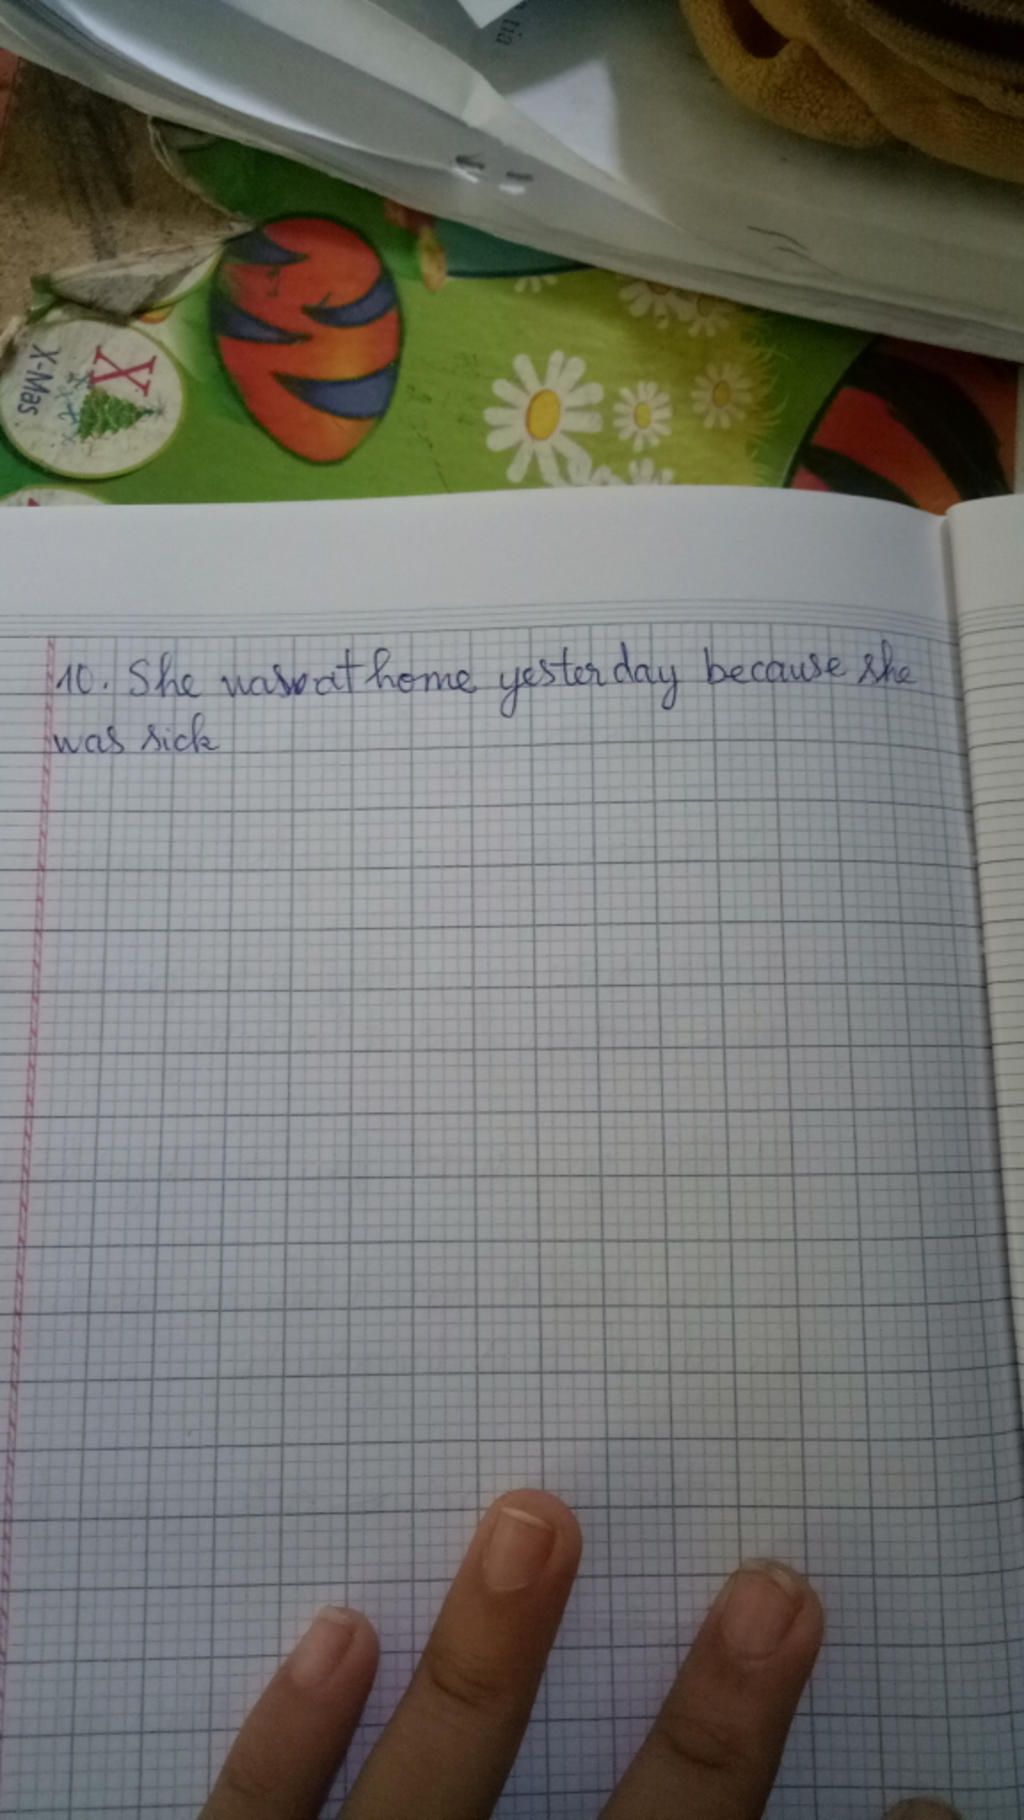 X
X-Mas
10. She was at home yesterday because she
was sick